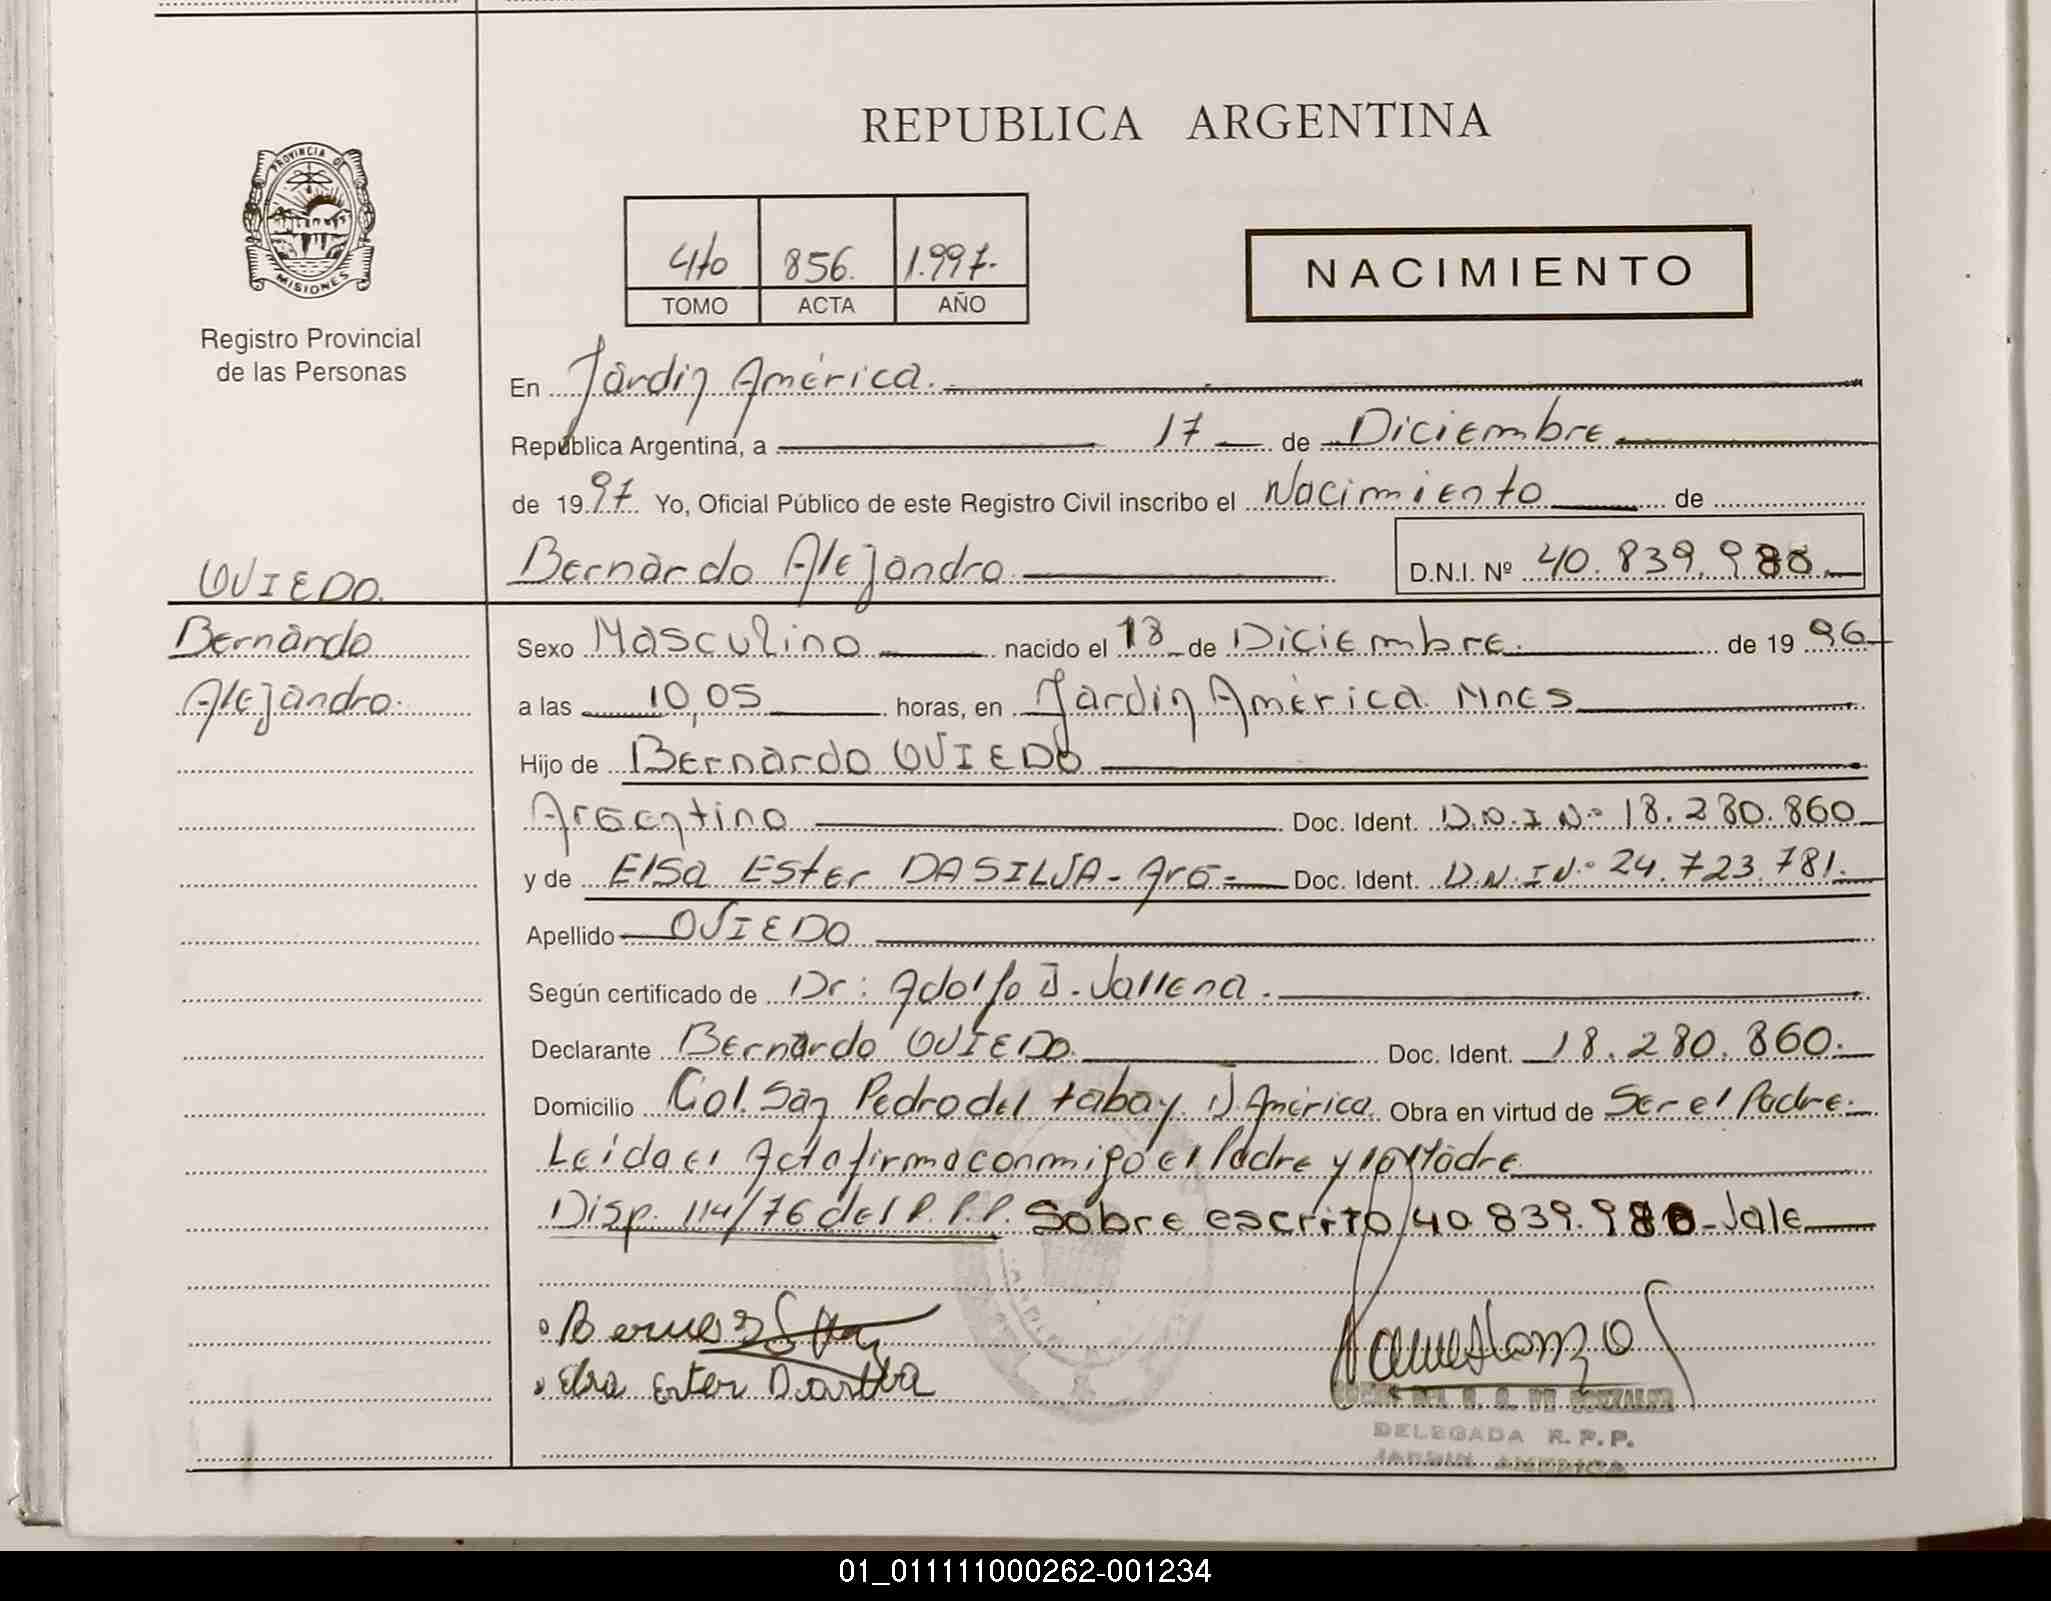 REPUBLICA ARGENTINA
PROVINCIA DE
MISIONES
Registro Provincial
de las Personas
4to 856. 1.997.
TOMO ACTA AÑO
NACIMIENTO
En Jardín América.
República Argentina, a 17 de Diciembre
de 1997. Yo, Oficial Público de este Registro Civil inscribo el Nacimiento de
OVIEDO.
Bernardo Alejandro D.N.I. Nº 40.839.980.
Bernardo
Alejandro.
Sexo Masculino nacido el 18 de Diciembre. de 1996
a las 10,05 horas, en Jardín América Mnes
Hijo de Bernardo OVIEDO
Argentino Doc. Ident. D.N.I Nº 18.280.860
y de Elsa Ester DASILVA - Arg - Doc. Ident. D.N.I Nº 24.723.781.
Apellido OVIEDO
Según certificado de Dr: Adolfo J. Vallena.
Declarante Bernardo OVIEDO. Doc. Ident. 18.280.860.
Domicilio Col. San Pedro del tabay J América. Obra en virtud de Ser el Padre.
Leída el Acta firma conmigo el Padre y la Madre
Disp. 114/76 del R.P.P. Sobre escrito 40.839.980 - Vale
Elsa Ester Dasilva
DE GONZALEZ
DELEGADA R.P.P.
JARDIN AMERICA
01_011111000262-001234